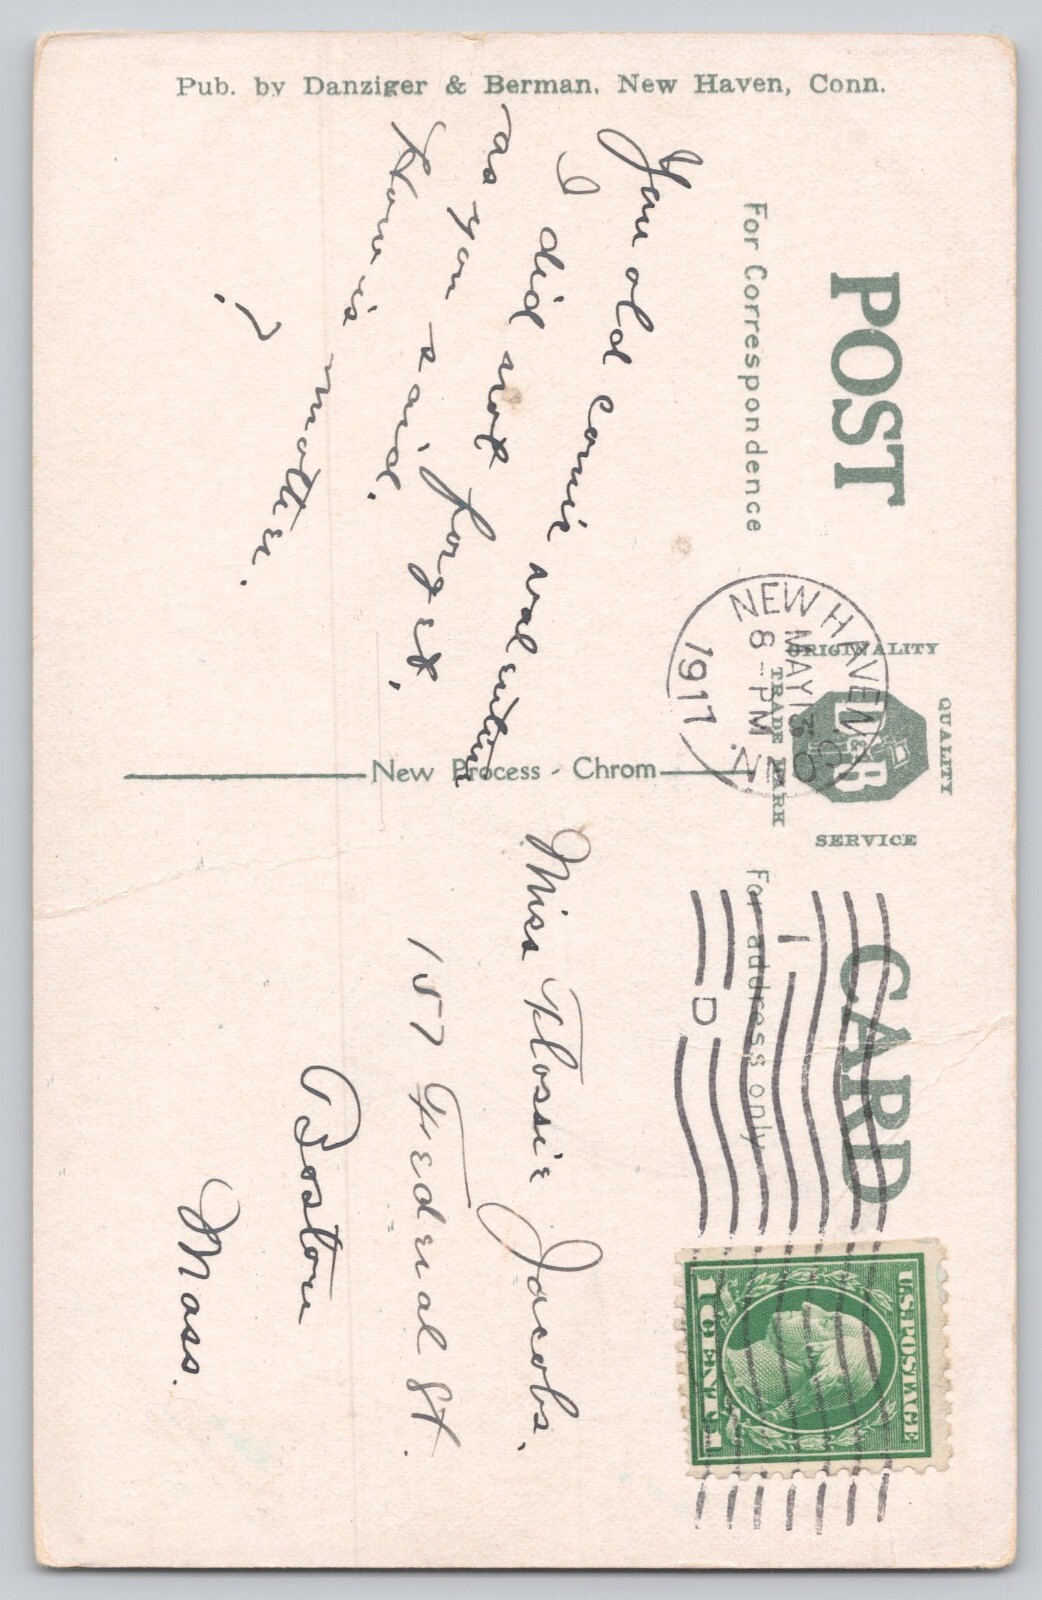 Pub. by Danziger & Berman, New Haven, Conn.
POST CARD
For Correspondence
For address only
ORIGINALITY
QUALITY
SERVICE
TRADE MARK
D & B
NEW HAVEN, CONN.
MAY 13
8 - PM
1917
1
D
U.S. POSTAGE
1 CENT 1
You old comic valentine
I did not forget,
as you said.
How is mother.
?
New Process - Chrom
Miss Flossie Jacobs,
157 Federal St.
Boston
Mass.